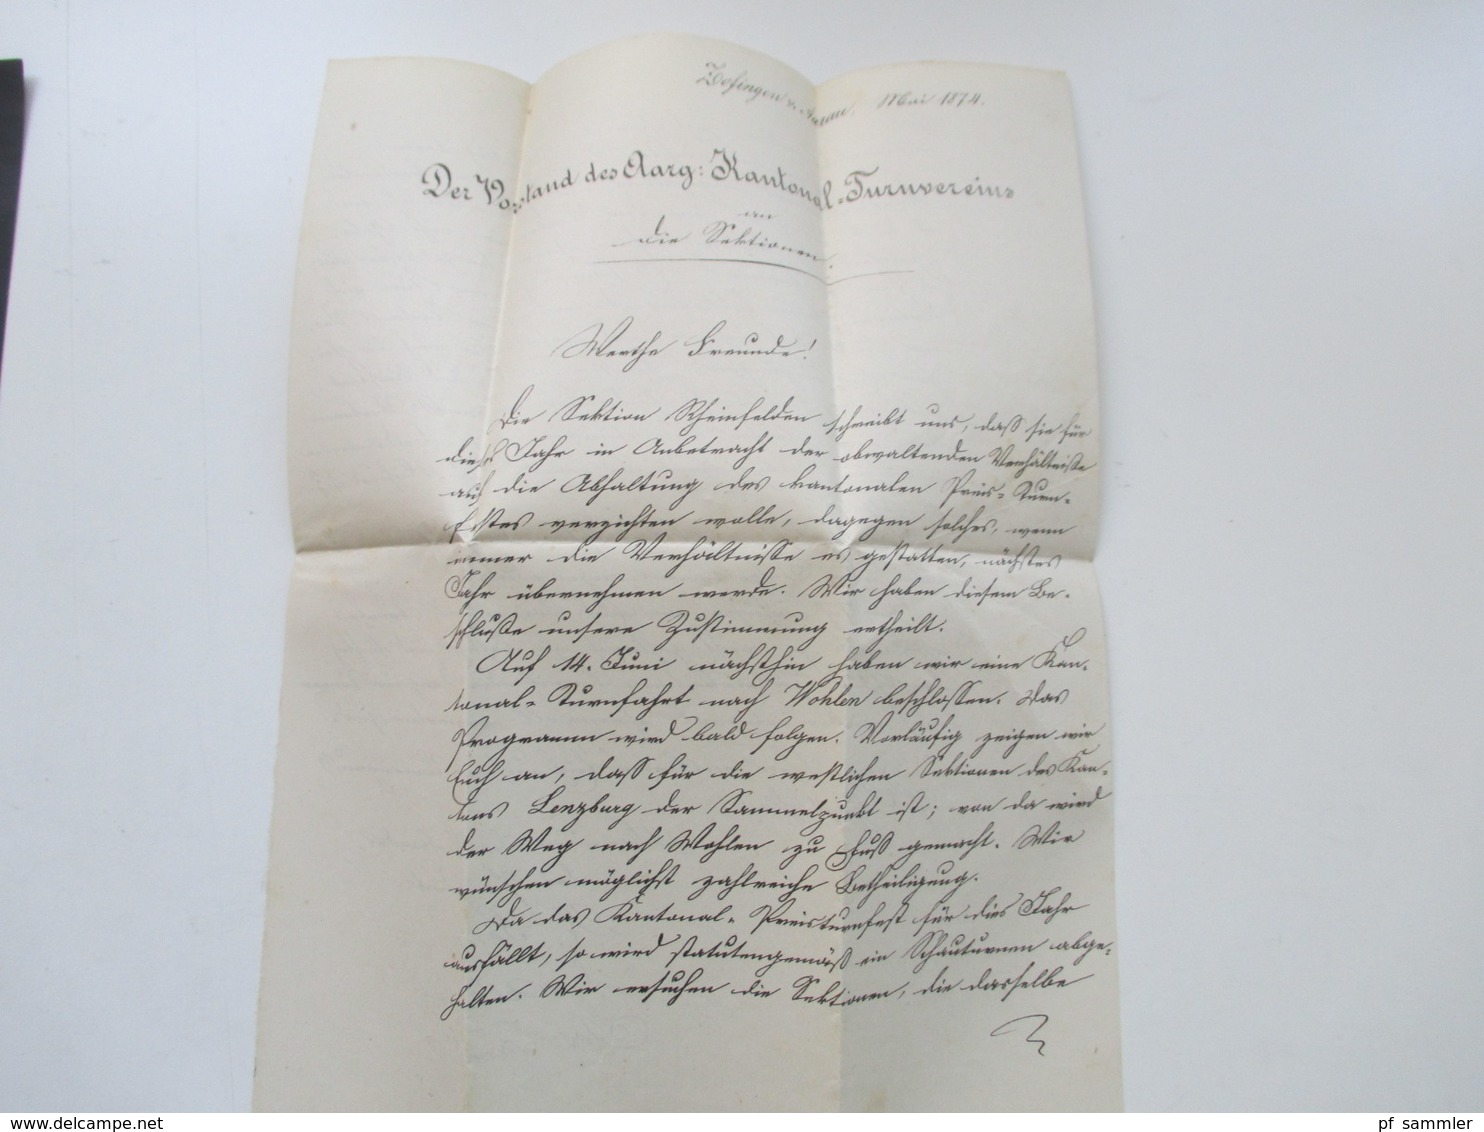 Zofingen u. Aarau, Mai 1874.
Der Vorstand des Aarg: Kantonal-Turnvereins
an
die Sektionen.
Werthe Freunde!
Die Sektion Rheinfelden schreibt uns, daß sie für
dieses Jahr in Anbetracht der obwaltenden Verhältniße
auf die Abhaltung des kantonalen Preis-Turn-
festes verzichten wolle, dagegen solches, wenn
immer die Verhältnisse es gestatten, nächstes
Jahr übernehmen werde. Wir haben diesem Be-
schluße unsere Zustimmung ertheilt.
Auf 14. Juni nächsthin haben wir eine Kan-
tonal-Turnfahrt nach Wohlen beschlossen. Das
Programm wird bald folgen. Vorläufig zeigen wir
Euch an, daß für die westlichen Sektionen des Kan-
tons Lenzburg der Sammelpunkt ist; von da wird
der Weg nach Wohlen zu Fuß gemacht. Wir
wünschen möglichst zahlreiche Betheiligung.
Da das Kantonal-Preisturnfest für dies Jahr
ausfällt, so wird statutengemäß ein Schauturnen abge-
halten. Wir ersuchen die Sektionen, die dasselbe
pf sammler
delcampe.net